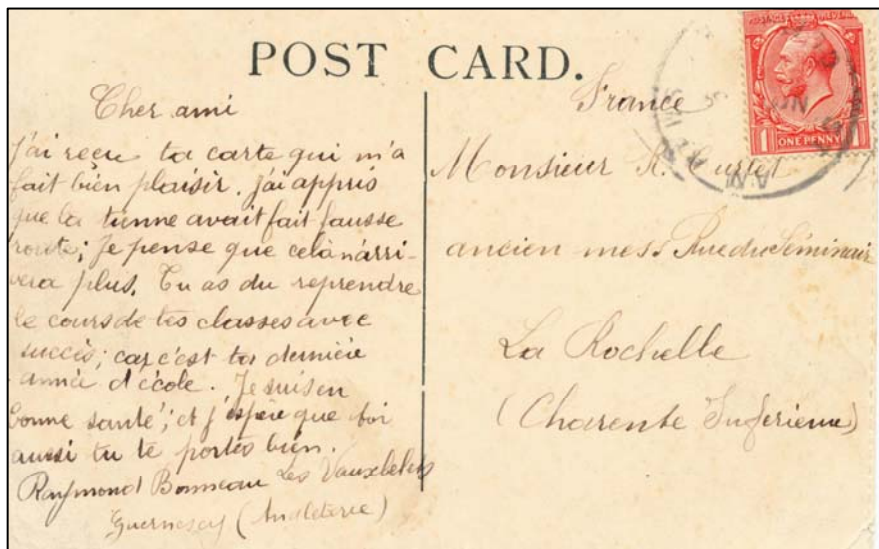 POST CARD.
Cher ami
j'ai reçu ta carte qui m'a
fait bien plaisir. j'ai appris
que la tienne avait fait fausse
route; Je pense que celà n'arri-
vera plus. Tu as du reprendre
le cours de tes classes avec
succès; car c'est ta dernière
année d'école. Je suis en
bonne santé; et j'espère que toi
aussi tu te portes bien.
Raymond Bonneau Les Vauxbelets
Guernesey (Angleterie)
France
Monsieur R.
ancien mess Rue du Séminair
La Rochelle
(Charente Inferieure)
ONE PENNY
1 1